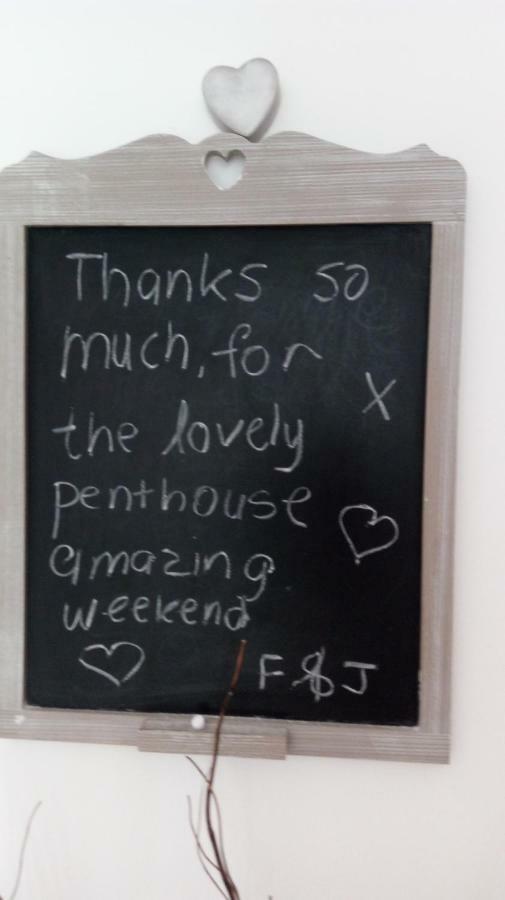 Thanks so
much, for
X
the lovely
penthouse
amazing
weekend
F & J